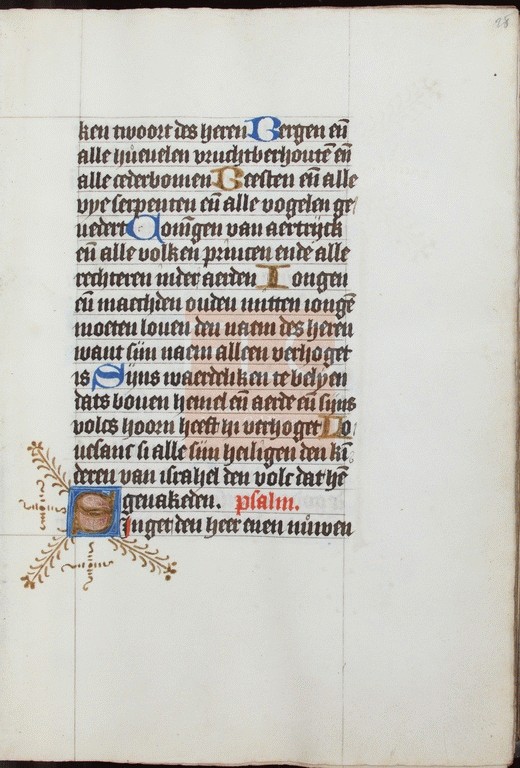 28
ken twoort des heren Bergen eñ
alle huevelen vruchtberhoutē eñ
alle cederbomen Beesten eñ alle
vye serpenten eñ alle vogelen ge
vedert Coningen van aertrijck
eñ alle volken princen ende alle
rechteren inder aerden Iongen
eñ maechden ouden mitten iongē
moeten loven den naem des heren
want sijn naem alleen verhoget
is Sijns waerdeliken te belyen
dats boven hemel eñ aerde eñ sijns
volcs hoorn heeft hi verhoget Lo
vesanc si alle sijn heiligen den kī
deren van israhel den volc dat hē
genakeden. psalm.
Singet den heer enen nuwen